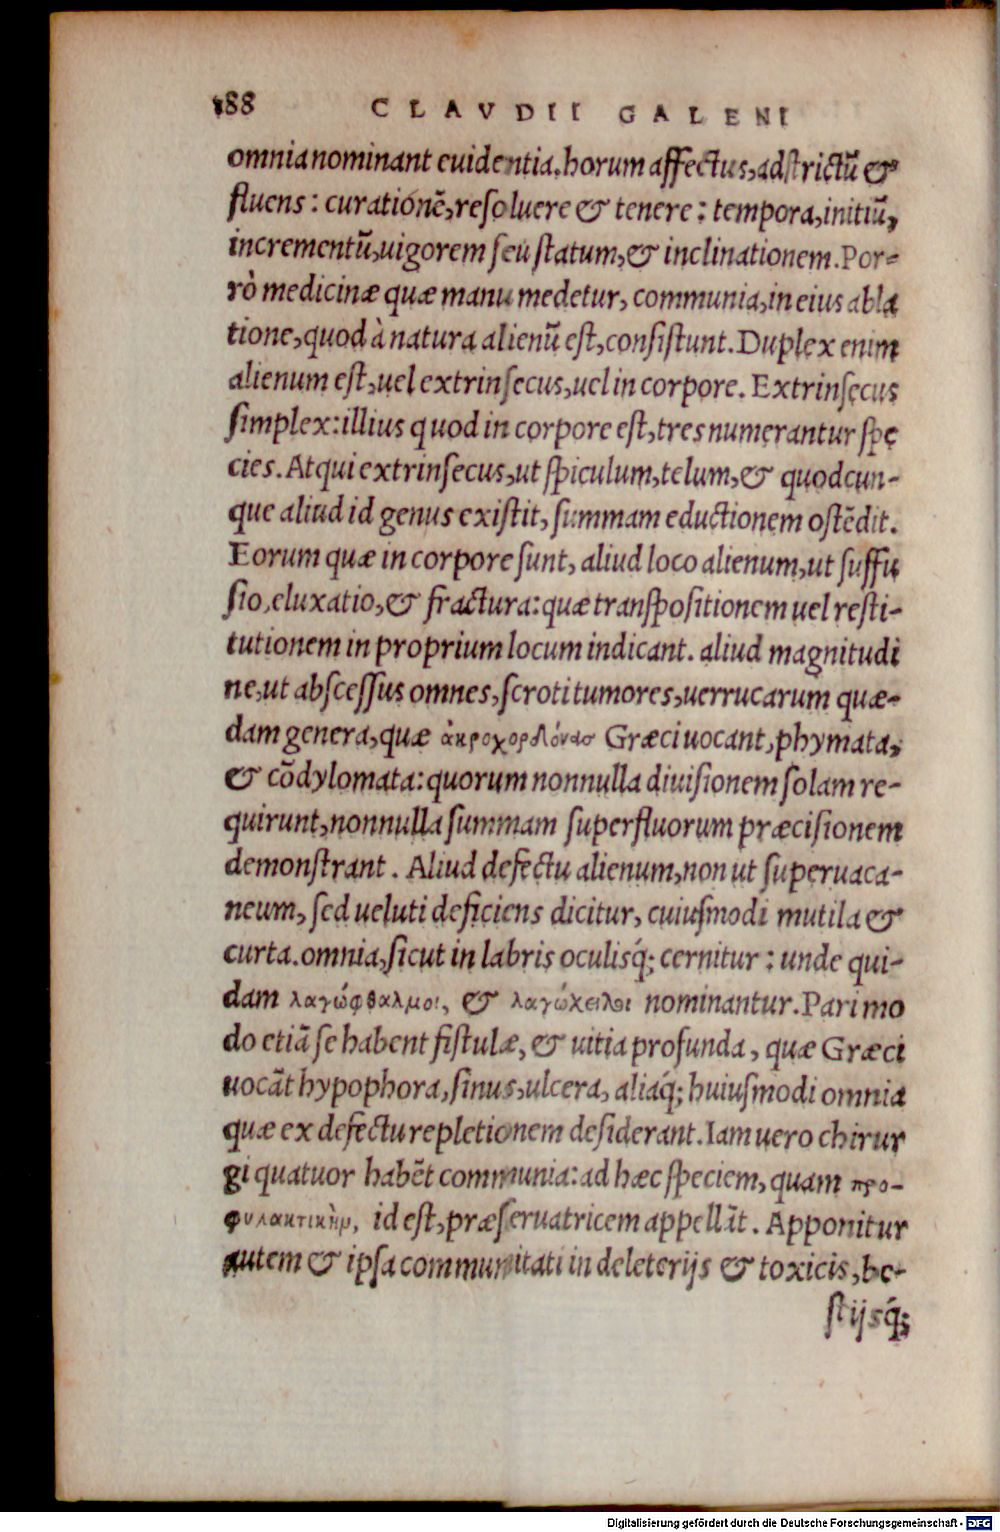 188 CLAVDII GALENI
omnia nominant euidentia. horum affectus, adstrictũ &
fluens: curationẽ, resoluere & tenere: tempora, initiũ,
incrementũ, uigorem seu statum, & inclinationem. Por-
rò medicinæ quæ manu medetur, communia, in eius abla
tione, quod à natura alienũ est, consistunt. Duplex enim
alienum est, uel extrinsecus, uel in corpore. Extrinsecus
simplex: illius quod in corpore est, tres numerantur spe
cies. Atqui extrinsecus, ut spiculum, telum, & quodcun-
que aliud id genus existit, summam eductionem ostẽdit.
Eorum quæ in corpore sunt, aliud loco alienum, ut suffu
sio, eluxatio, & fractura: quæ transpositionem uel resti-
tutionem in proprium locum indicant. aliud magnitudi
ne, ut abscessus omnes, scroti tumores, uerrucarum quæ-
dam genera, quæ ἀκροχορδόνας Græci uocant, phymata,
& cõdylomata: quorum nonnulla diuisionem solam re-
quirunt, nonnulla summam superfluorum præcisionem
demonstrant. Aliud defectu alienum, non ut superuaca-
neum, sed ueluti deficiens dicitur, cuiusmodi mutila &
curta. omnia, sicut in labris oculisq́; cernitur: unde qui-
dam λαγώφθαλμοι, & λαγώχειλοι nominantur. Pari mo
do etiã se habent fistulæ, & uitia profunda, quæ Græci
uocãt hypophora, sinus, ulcera, aliaq́; huiusmodi omnia
quæ ex defectu repletionem desiderant. Iam uero chirur
gi quatuor habẽt communia: ad hæc speciem, quam προ-
φυλακτικὴν, id est, præseruatricem appellãt. Apponitur
autem & ipsa communitati in deleterijs & toxicis, be-
stijsq́;
Digitalisierung gefördert durch die Deutsche Forschungsgemeinschaft - DFG